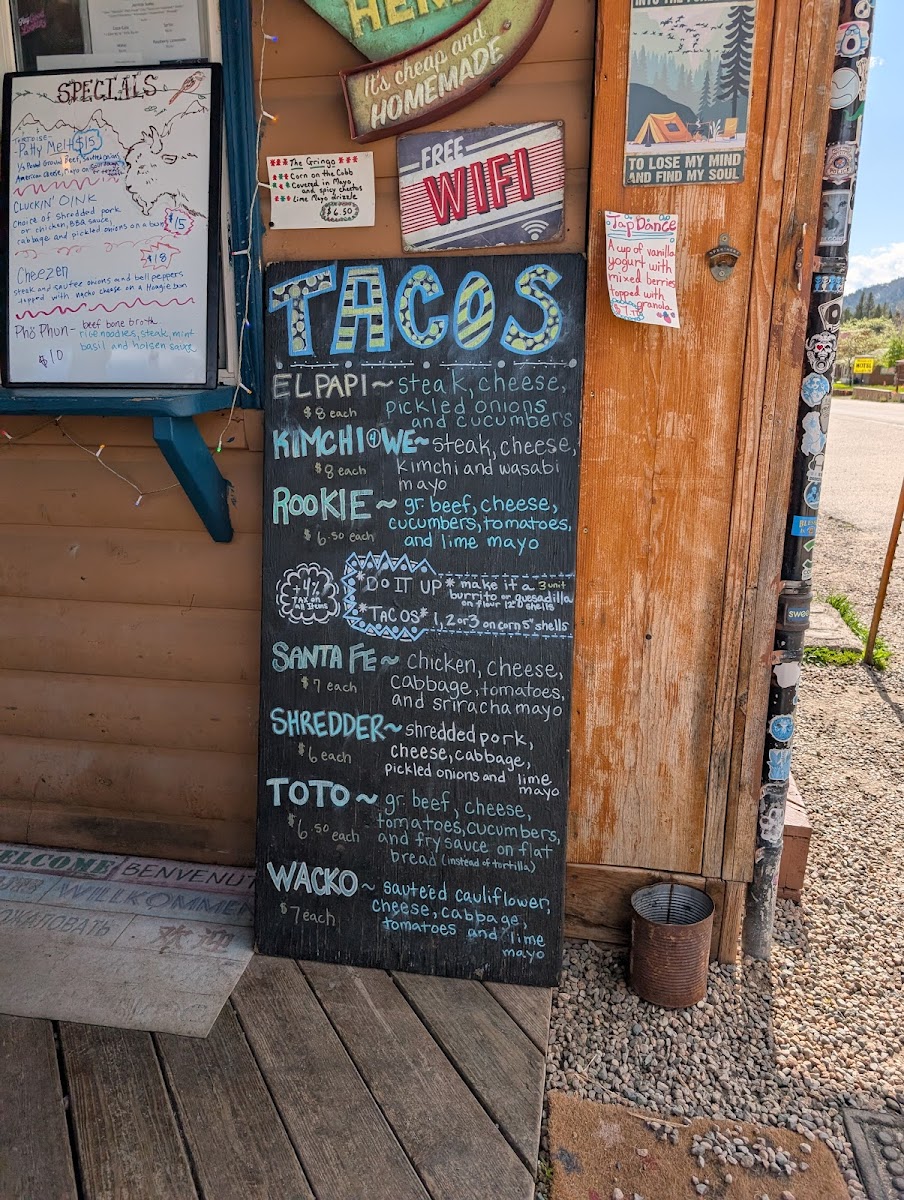 SPECIALS
Patty Melt $15
American cheese, Mayo on
CLUCKIN' OINK
Choice of shredded pork
or chicken, BBQ sauce,
cabbage and pickled onions on a bun $15
$18
Cheezen
steak and sautee onions and bell peppers
topped with Nacho cheese on a Hoagie bun
Phở Phun- beef bone broth
rice noodles, steak, mint
basil and hoisen sauce
$10
It's cheap and
HOMEMADE
The Gringo
Corn on the Cobb
Covered in Mayo
and spicy cheetos
lime Mayo drizzle
$6.50
FREE
WIFI
TO LOSE MY MIND
AND FIND MY SOUL
Tap Dance
A cup of vanilla
yogurt with
mixed berries
topped with
granola
TACOS
EL PAPI~ steak, cheese,
$8 each pickled onions
and cucumbers
KIMCHI 4 WE~ steak, cheese,
$8 each kimchi and wasabi
mayo
ROOKIE~ gr. beef, cheese,
cucumbers, tomatoes,
$6.50 each and lime mayo
+4%
TAX on
all Items
*DO IT UP* make it a 3 unit
burrito or quesadilla
on flour 12" shells
*TACOS* 1, 2 or 3 on corn 5" shells
SANTA FE~ chicken, cheese,
$7 each cabbage, tomatoes,
and sriracha mayo
SHREDDER~ shredded pork,
$6 each cheese, cabbage,
pickled onions and lime
mayo
TOTO~ gr. beef, cheese,
$6.50 each tomatoes, cucumbers,
and frysauce on flat
bread (instead of tortilla)
WACKO~ sauteéd cauliflower,
$7 each cheese, cabbage,
tomatoes and lime
mayo
WELCOME BENVENUT
WILLKOMMEN
ПОЖАЛОВАТЬ 欢迎